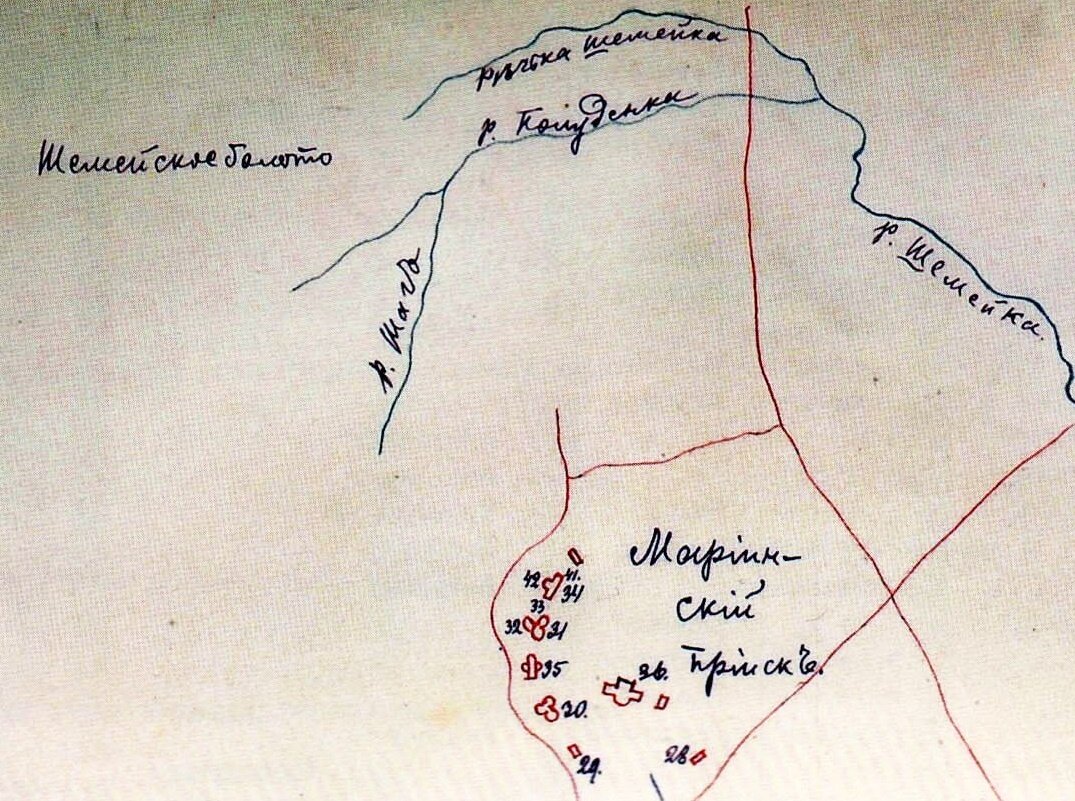 рѣчька Шемейка
р. Полуденка
Шемейское болото
р. Шемейка.
р. Шагв
Марiин-
скiй
Прiискъ.
42
41.
34
33
32
31
35
26.
30.
29.
28